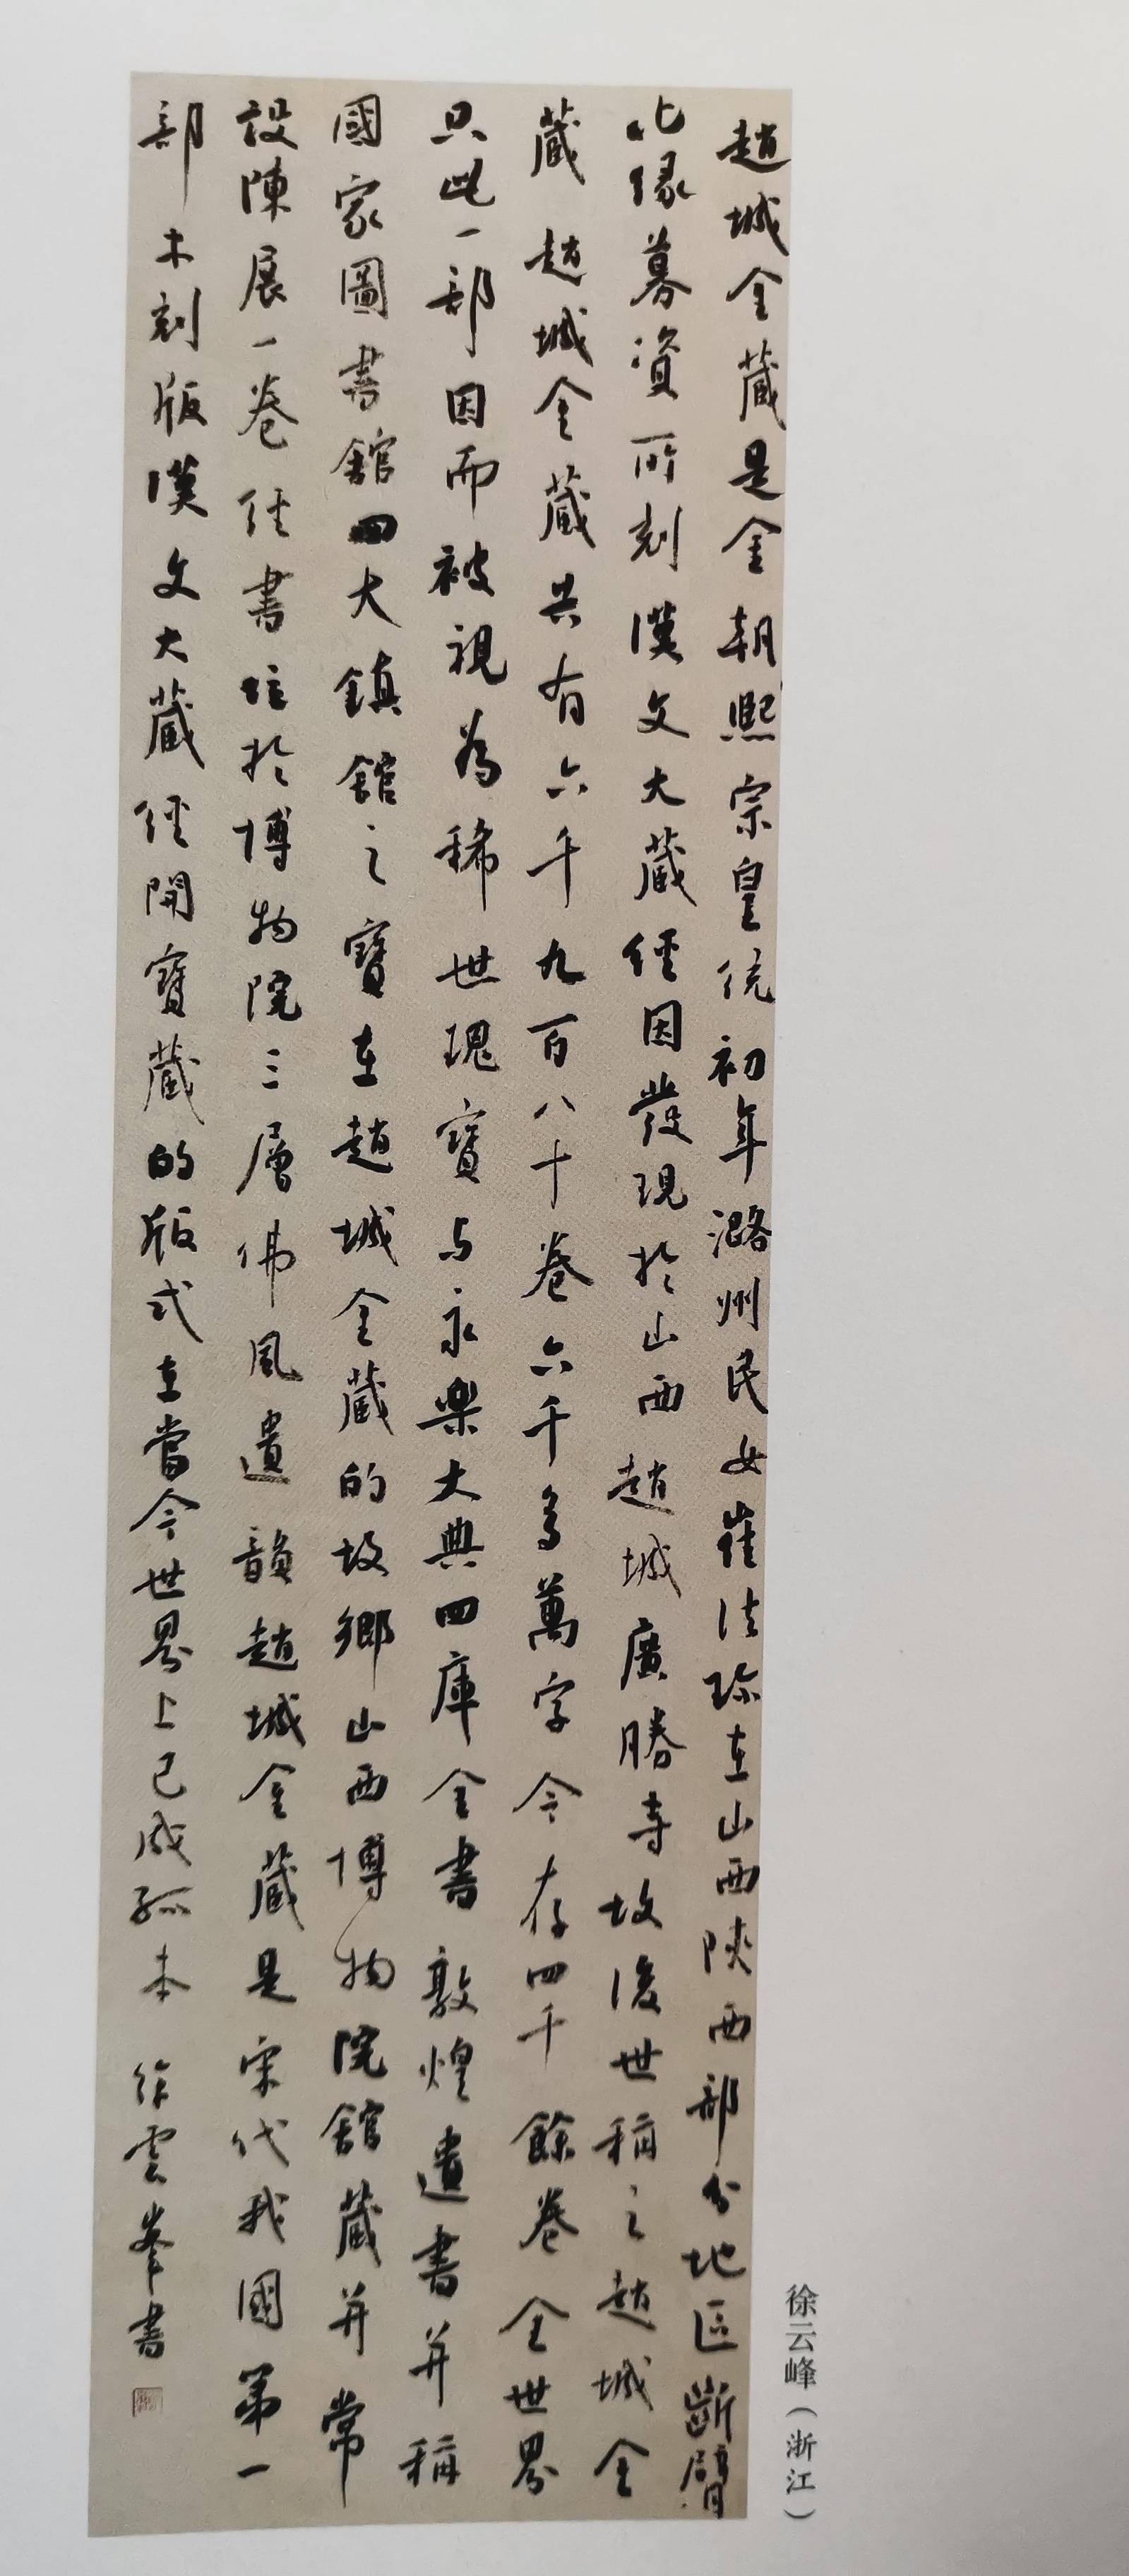 趙城金藏是金朝熙宗皇統初年潞州民女崔法珍在山西陝西部分地區斷臂
化緣募資所刻漢文大藏經因發現於山西趙城廣勝寺故後世稱之趙城金
藏趙城金藏共有六千九百八十卷六千多萬字今存四千餘卷全世界
只此一部因而被視為稀世瑰寶与永樂大典四庫全書敦煌遺書并稱
國家圖書館四大鎮館之寶在趙城金藏的故鄉山西博物院館藏并常
設陳展一卷經書位於博物院三層佛風遺韻趙城金藏是宋代我國第一
部木刻版漢文大藏經開寶藏的版式在當今世界上已成孤本 徐雲峯書
徐云峰（浙江）